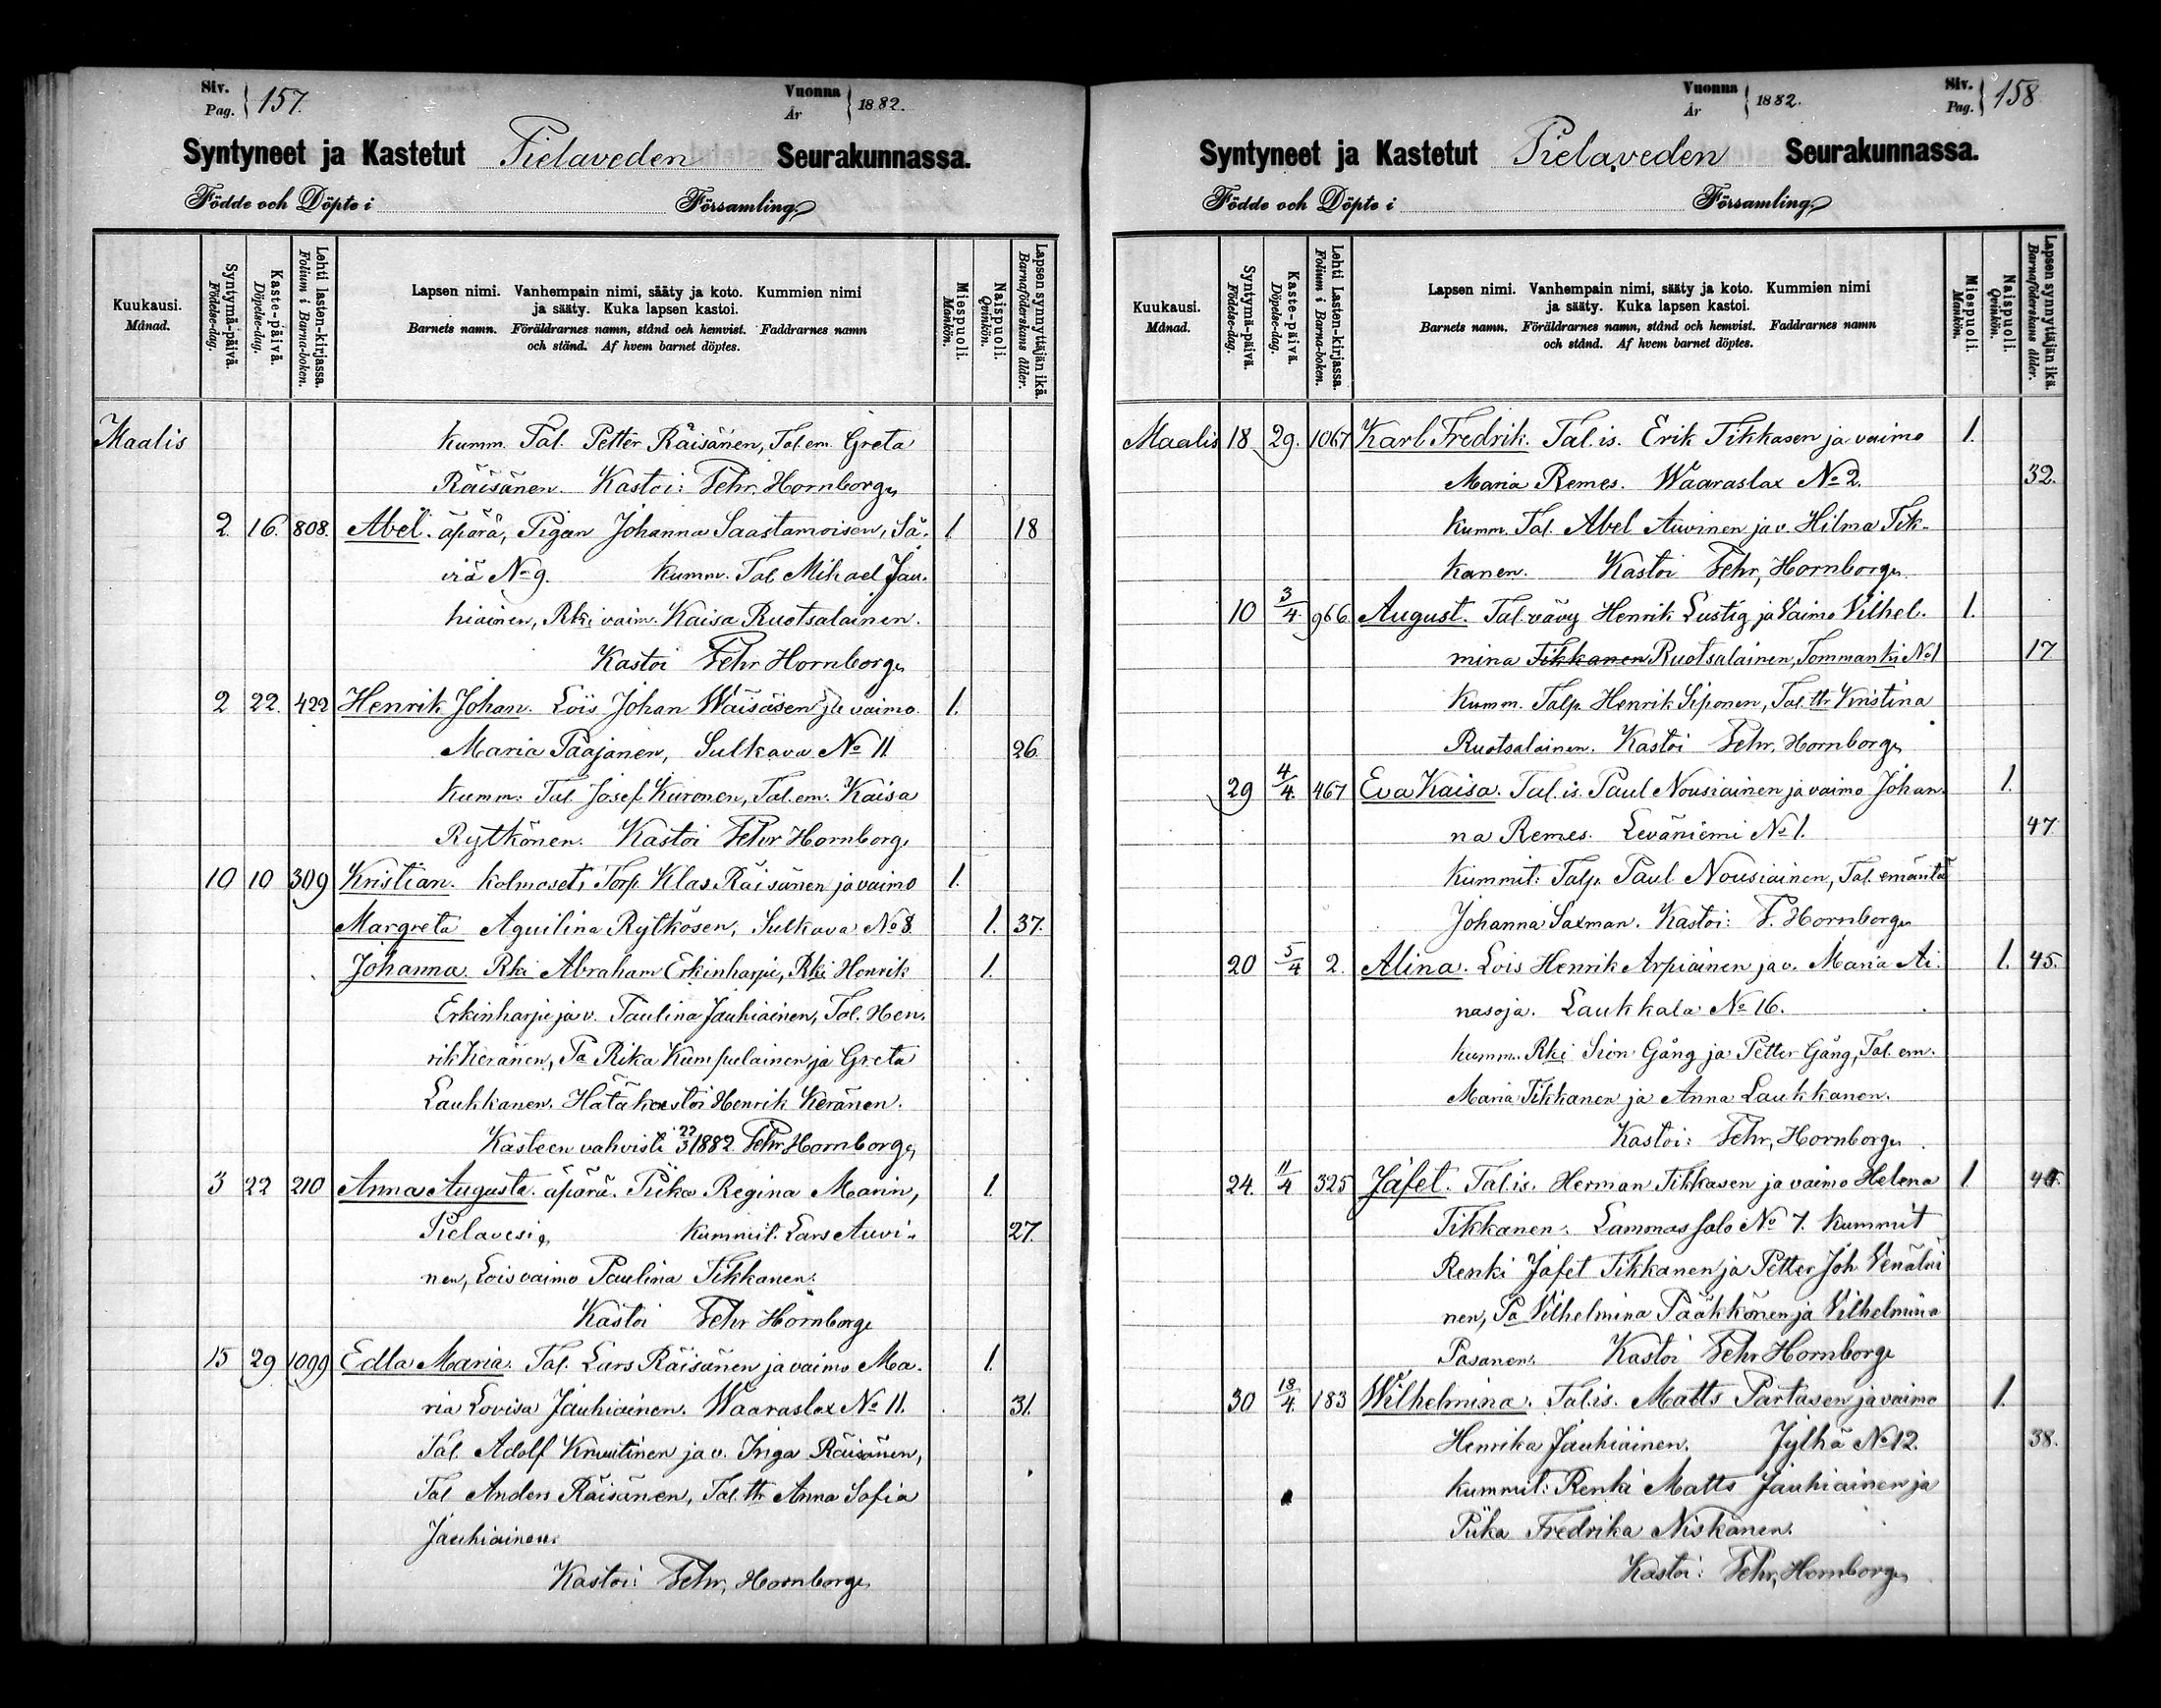 Siv.
Pag. 157.
Vuonna
År 1882.
Syntyneet ja Kastetut Pielaveden Seurakunnassa.
Födde och Döpte i Församling.
Kuukausi.
Månad.
Syntymä-päivä.
Födelse-dag.
Kaste-päivä.
Döpelse-dag.
Lehti lasten-kirjassa.
Folium i Barna-boken.
Lapsen nimi. Vanhempain nimi, sääty ja koto. Kummien nimi
ja sääty. Kuka lapsen kastoi.
Barnets namn. Föräldrarnes namn, stånd och hemvist. Faddrarnes namn
och stånd. Af hvem barnet döptes.
Miespuoli.
Mankön.
Naispuoli.
Qvinkön.
Lapsen synnyttäjän ikä.
Barnaföderskans ålder.
Maalis Kumm. Tal. Petter Räisänen, Tal. em. Greta
Räisänen. Kastoi: Fehr, Hornborg
2. 16. 808. Abel. äpärä, Pigan Johanna Saastamoisen, Sä- 1. 18
viä No 9. Kumm. Tal Mikael Jau-
hiainen, Rki vaim. Kaisa Ruotsalainen.
Kastoi Fehr Hornborg
2 22. 422 Henrik Johan. Lois Johan Wäisäsen ja vaimo 1.
Maria Pääjanen, Sulkava No 11. 26.
Kumm: Tal. Josef Kuronen, Tal. em. Kaisa
Rytkönen. Kastoi Fehr Hornborg
10 10 309 Kristian. kolmoset, Torp. Klas Räisänen ja vaimo 1.
Margreta Aquilina Rytkösen, Sulkava No 8. 1. 37.
Johanna. Rki Abraham Erkinharju, Rki Henrik 1.
Erkinharju ja v. Paulina Jauhiainen, Tal. Hen-
rik Keränen, Pa Rika Kumpulainen ja Greta
Laukkanen. Hätäkastoi Henrik Keränen.
Kasteen vahvisti 22/3 1882 Fehr Hornborg
3 22 210 Anna Augusta. äpärä. Piika Regina Marin, 1.
Pielavesi, Kummit: Lars Auvi- 27.
nen, Lois vaimo Paulina Tikkanen.
Kastoi Fehr Hornborg
15 29 1099 Edla Maria. Tal. Lars Räisänen ja vaimo Ma- 1.
ria Lovisa Jauhiainen. Waaraslax No 11. 31.
Tal. Adolf Knuutinen ja v. Inga Räisänen,
Tal Anders Räisänen, Tal. ttr Anna Sofia
Jauhiainen.
Kastoi: Fehr, Hornborg
Vuonna
År 1882.
Siv.
Pag. 158
Syntyneet ja Kastetut Pielaveden Seurakunnassa.
Födde och Döpte i Församling.
Kuukausi.
Månad.
Syntymä-päivä.
Födelse-dag.
Kaste-päivä.
Döpelse-dag.
Lehti Lasten-kirjassa.
Folium i Barna-boken.
Lapsen nimi. Vanhempain nimi, sääty ja koto. Kummien nimi
ja sääty. Kuka lapsen kastoi.
Barnets namn. Föräldrarnes namn, stånd och hemvist. Faddrarnes namn
och stånd. Af hvem barnet döptes.
Miespuoli.
Mankön.
Naispuoli.
Qvinkön.
Lapsen synnyttäjän ikä.
Barnaföderskans ålder.
Maalis 18 29. 1067 Karl Fredrik. Tal. is. Erik Tikkasen ja vaimo 1.
Maria Remes. Waaraslax No 2. 32.
Kumm. Tal. Abel Auvinen ja v. Hilma Tik-
kanen. Kastoi Fehr, Hornborg
10 3/4. 966. August. Tal. vävy Henrik Lustig ja Vaimo Vilhel- 1.
mina Tikkanen Ruotsalainen, Tommanki No 1 17
Kumm. Talp. Henrik Siponen, Tal. ttr Kristina
Ruotsalainen. Kastoi Fehr, Hornborg
29 4/4. 467 Eva Kaisa. Tal. is. Paul Nousiainen ja vaimo Johan- 1.
na Remes. Leväniemi No 1. 47
Kummit: Talp. Paul Nousiainen, Tal. emäntä
Johanna Saxman. Kastoi: F. Hornborg
20 5/4 2. Alina. Lois Henrik Arpiainen ja v. Maria Ai- 1. 45.
nasoja. Laukkala No 16.
Kumm. Rki Sion Gång ja Petter Gång, Tal. em.
Maria Tikkanen ja Anna Laukkanen.
Kastoi: Fehr, Hornborg
24. 11/4 325 Jafet. Tal. is. Herman Tikkasen ja vaimo Helena 1.
Tikkanen. Lammassalo No 7. Kummit
Renki Jafet Tikkanen ja Petter Joh Venäläi
nen, Pa Vilhelmina Pääkkönen ja Vilhelmina
Pasanen. Kastoi Fehr Hornborg
30 18/4. 183 Wilhelmina. Tal. is. Matts Partasen ja vaimo 1.
Henrika Jauhiainen. Jylhä No 12. 38.
Kummit: Renki Matts Jauhiainen ja
Piika Fredrika Niskanen.
Kastoi: Fehr, Hornborg